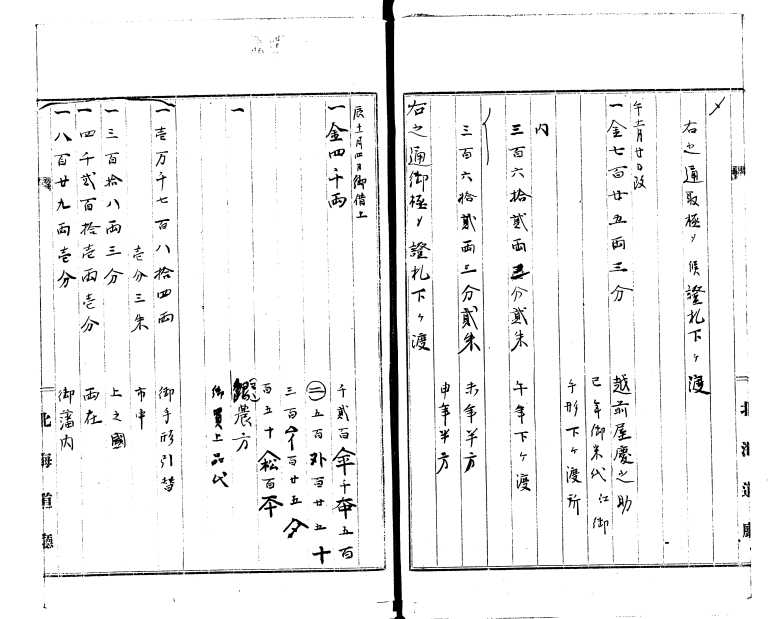 右之通取極メ候證札下ケ渡
午十一月廿日改
一金七百廿五両三分
越前屋慶之助
巳年御米代江御
手形下ケ渡所
内
三百六拾貳両三分貳朱
午年下ケ渡
三百六拾貳両三分貳朱
未年半方
申年半方
右之通御極メ證札下ケ渡
北海道廳
辰十一月四日御借上
一金四千両
千貳百
千
五百
五百
百廿五
十
三百
百廿五
百五十
百
一
農方
御買上品代
一壱万千七百八拾四両
壱分三朱
御手形引替
市中
一三百拾八両三分
上之國
一四千貳百拾壱両壱分
両在
一八百廿九両壱分
御藩内
北海道廳